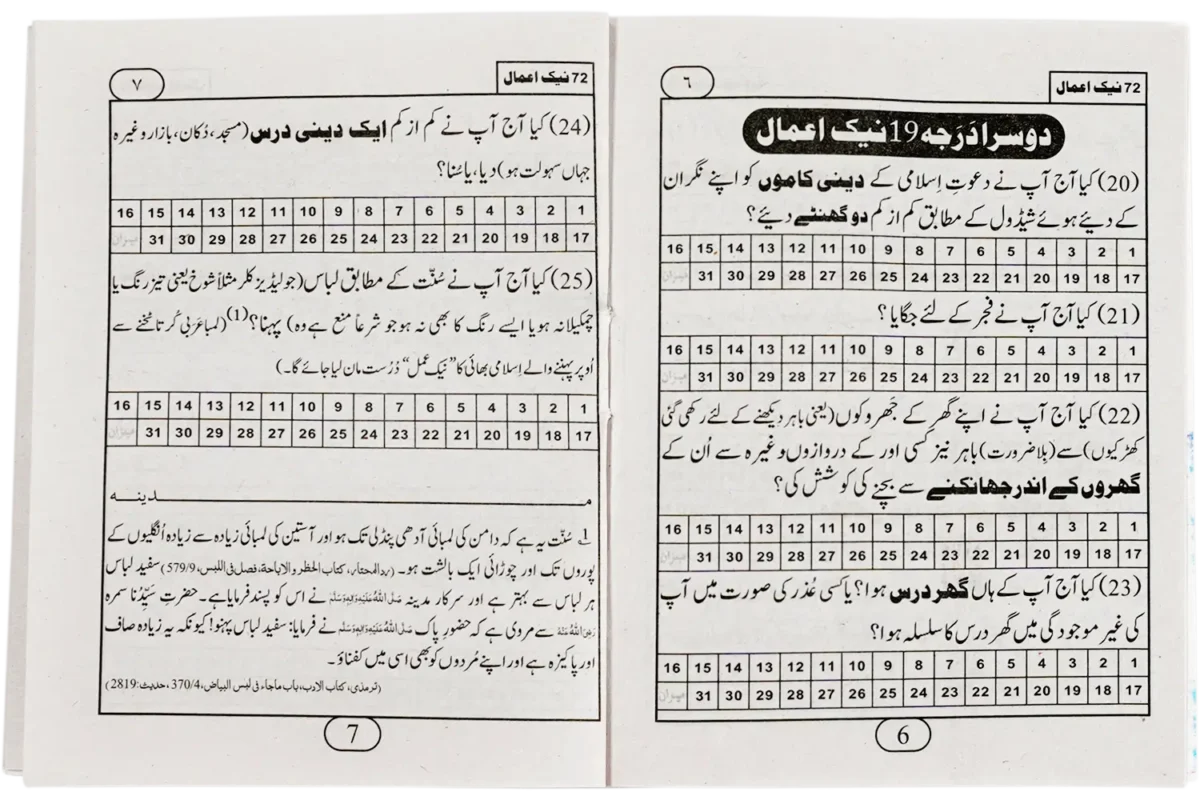 72 نیک اعمال
٦
دوسرا دَرَجہ 19 نیک اعمال
(20) کیا آج آپ نے دعوتِ اِسلامی کے دینی کاموں کو اپنے نگران
کے دیئے ہوئے شیڈول کے مطابق کم از کم دو گھنٹے دیئے؟
1 2 3 4 5 6 7 8 9 10 11 12 13 14 15 16
17 18 19 20 21 22 23 24 25 26 27 28 29 30 31 میزان
(21) کیا آج آپ نے فجر کے لئے جگایا؟
1 2 3 4 5 6 7 8 9 10 11 12 13 14 15 16
17 18 19 20 21 22 23 24 25 26 27 28 29 30 31 میزان
(22) کیا آج آپ نے اپنے گھر کے جَھروکوں (یعنی باہر دیکھنے کے لئے رکھی گئی
کھڑکیوں) سے (بِلا ضرورت) باہر نیز کسی اور کے دروازوں وغیرہ سے اُن کے
گھروں کے اندر جھانکنے سے بچنے کی کوشش کی؟
1 2 3 4 5 6 7 8 9 10 11 12 13 14 15 16
17 18 19 20 21 22 23 24 25 26 27 28 29 30 31 میزان
(23) کیا آج آپ کے ہاں گھر درس ہوا؟ یا کسی عُذر کی صورت میں آپ
کی غیر موجودگی میں گھر درس کا سلسلہ ہوا؟
1 2 3 4 5 6 7 8 9 10 11 12 13 14 15 16
17 18 19 20 21 22 23 24 25 26 27 28 29 30 31 میزان
6
72 نیک اعمال
٧
(24) کیا آج آپ نے کم از کم ایک دینی درس (مسجد، دُکان، بازار وغیرہ
جہاں سہولت ہو) دیا، یا سُنا؟
1 2 3 4 5 6 7 8 9 10 11 12 13 14 15 16
17 18 19 20 21 22 23 24 25 26 27 28 29 30 31 میزان
(25) کیا آج آپ نے سُنّت کے مطابق لباس (جو لیڈیز کلر مثلاً شوخ یعنی تیز رنگ یا
چمکیلا نہ ہو یا ایسے رنگ کا بھی نہ ہو جو شرعاً منع ہے وہ) پہنا؟(1) (لمبا عَرَبی کُرتا ٹخنے سے
اُوپر پہننے والے اِسلامی بھائی کا ”نیک عمل“ دُرُست مان لیا جائے گا۔)
1 2 3 4 5 6 7 8 9 10 11 12 13 14 15 16
17 18 19 20 21 22 23 24 25 26 27 28 29 30 31 میزان
مـــــدینـــہ
1 سُنّت یہ ہے کہ دامن کی لمبائی آدھی پنڈلی تک ہو اور آستین کی لمبائی زیادہ سے زیادہ اُنگلیوں کے
پوروں تک اور چوڑائی ایک بالشت ہو۔ (ردالمحتار، کتاب الحظر والاباحة، فصل فی اللبس، 579/9) سفید لباس
ہر لباس سے بہتر ہے اور سرکار مدینہ صَلَّی اللهُ عَلَیْهِ وَاٰلِهٖ وَسَلَّم نے اس کو پسند فرمایا ہے۔ حضرتِ سَیِّدُنا سمرہ
رَضِیَ اللهُ عَنْهُ سے مروی ہے کہ حضورِ پاک صَلَّی اللهُ عَلَیْهِ وَاٰلِهٖ وَسَلَّم نے فرمایا: سفید لباس پہنو! کیونکہ یہ زیادہ صاف
اور پاکیزہ ہے اور اپنے مُردوں کو بھی اسی میں کفناؤ۔
(ترمذی، کتاب الادب، باب ماجاء فی لبس البیاض، 370/4، حدیث: 2819)
7